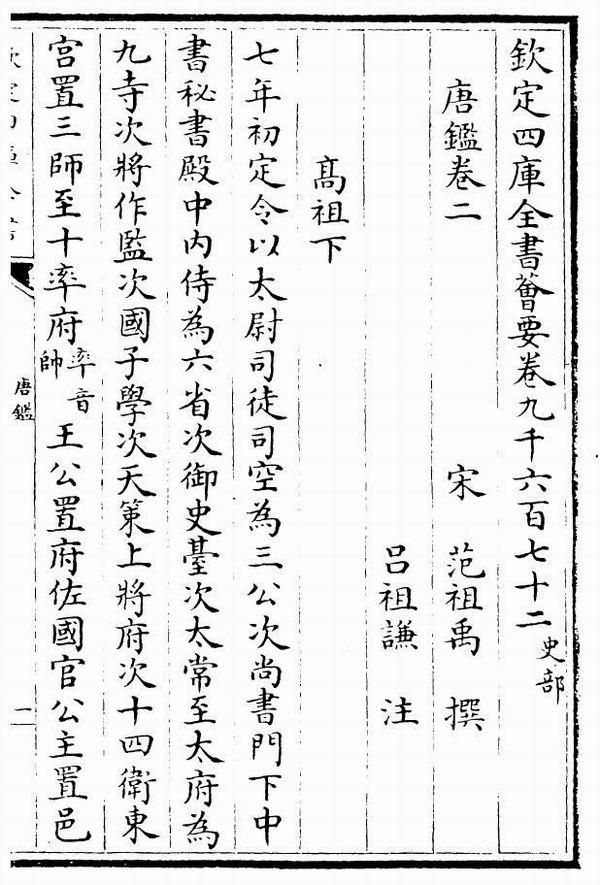 欽定四庫全書薈要卷九千六百七十二 史部
唐鑑卷二
宋 范祖禹 撰
吕祖謙 注
髙祖下
七年初定令以太尉司徒司空為三公次尚書門下中
書秘書殿中內侍為六省次御史臺次太常至太府為
九寺次將作監次國子學次天策上將府次十四衛東
宮置三師至十率府率音帥王公置府佐國官公主置邑
唐鑑